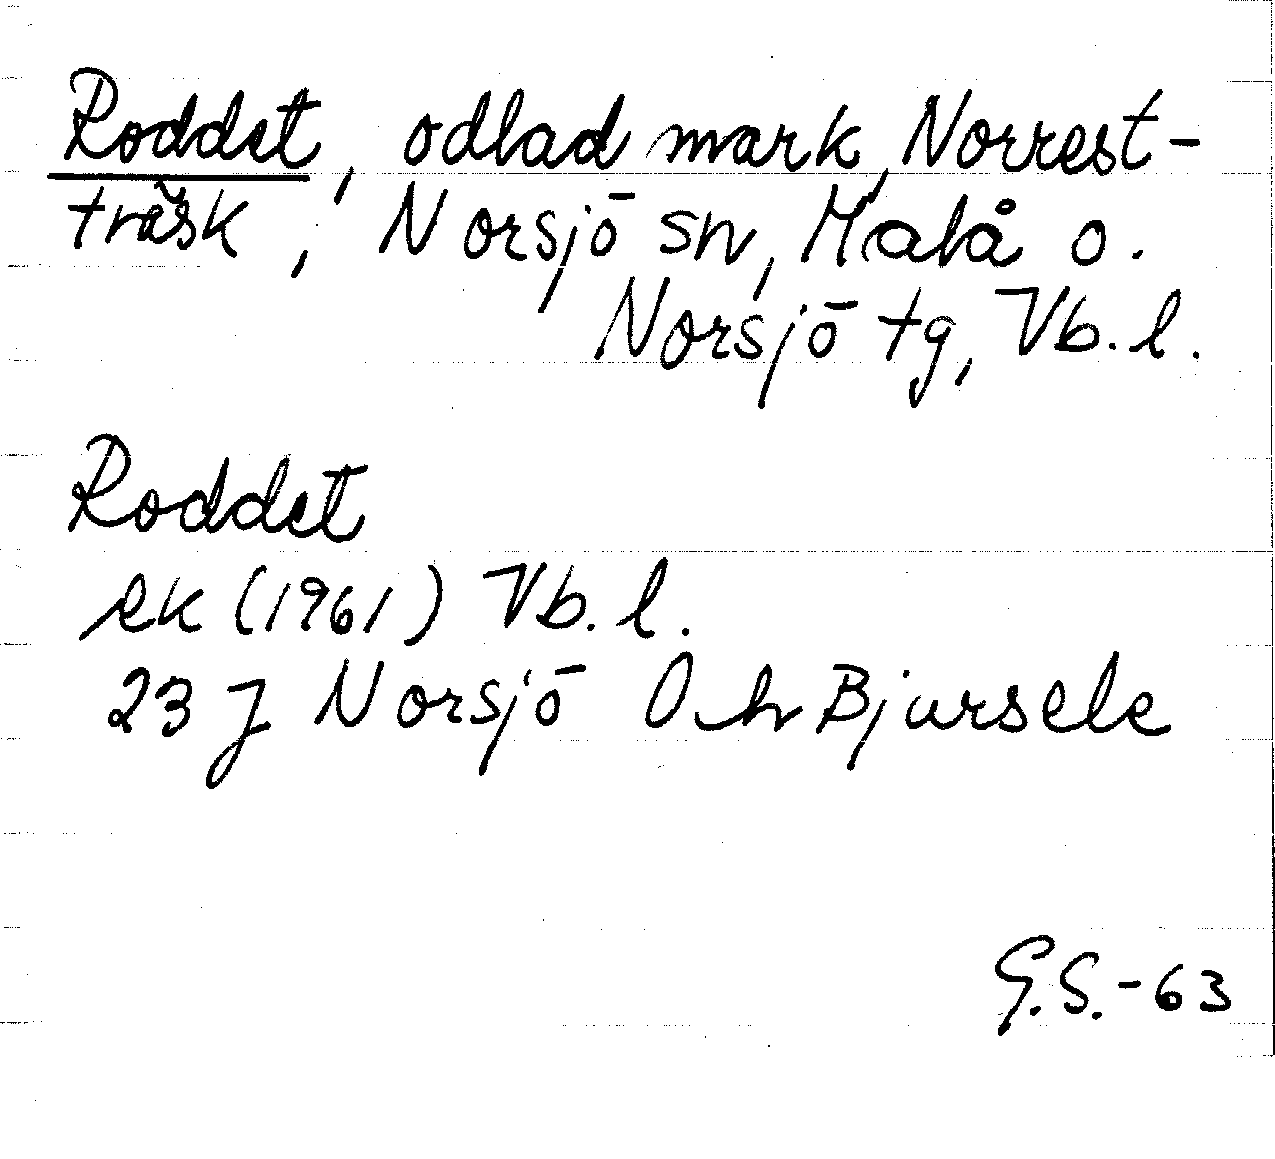 Roddet, odlad mark, Norrest-
träsk, Norsjö sn, Malå o.
Norsjö tg, Vb. l.
Roddet
ek (1961) Vb. l.
23 J Norsjö Och Bjursele
G.S.-63